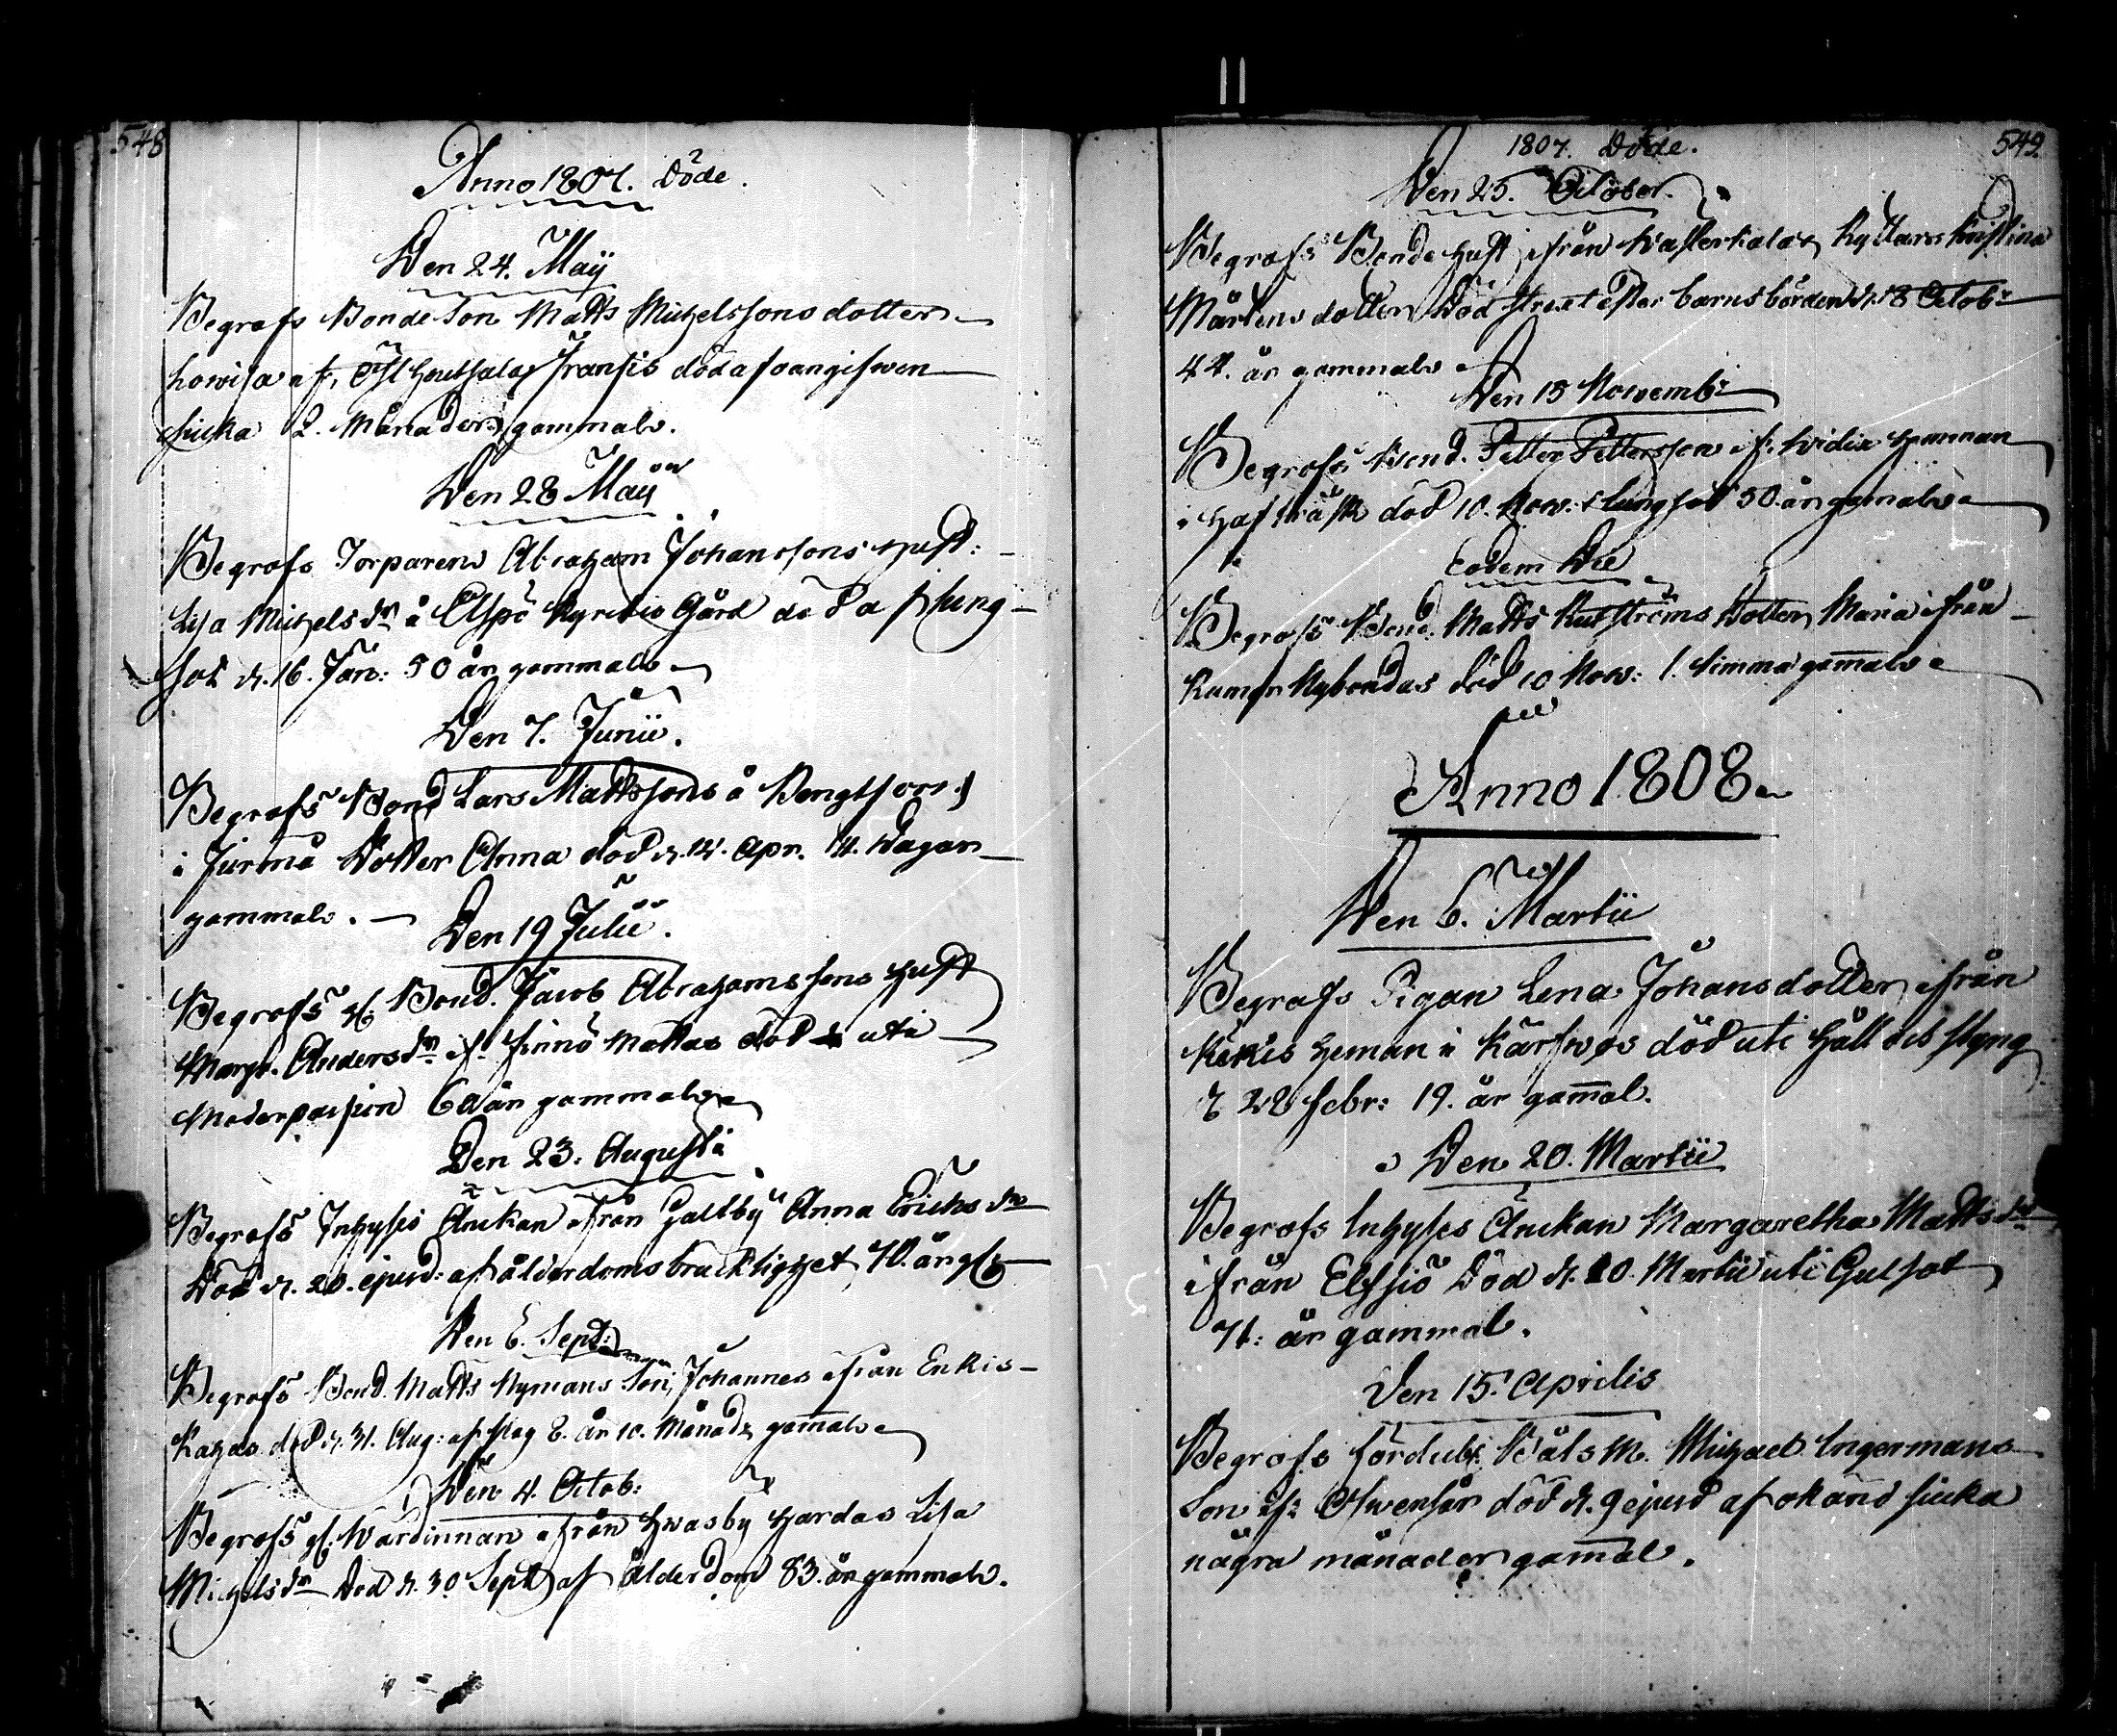 548
Anno 1807. Döde.
Den 24. Maÿ
Begrofs Bonde Son Matts Michelssons dotter
Lowisa af Houtsala Fransis död af oangifwen
siucka 2. Månader gammal.
Den 28 Maÿ
Begrofs Torparen Abraham Johanssons Hust:
Lisa Michels dr å Kyrckio Gård död af lung-
sot d. 16. Jan: 50 år gammal
Den 7. Junii.
Begrofs Bond Lars Mattssons å
i Jurmo Dotter Anna död d. 12. Apr. 14. Dagar
gammal.
Den 19 Julii.
Begrofs gl. Bond. Jacob Abrahamssons Hust
Margr. Anders dr if. Finnö Mattas död uti
Moderpassion år gammal
Den 23. Augusti
Begrofs Inhyses Änckan ifrån Galtby Anna Ericks dr
Död d. 20. ejusd: af ålderdoms bräcklighet 70. år gl
Den 6. Sept:
Begrofs Bond. Matts Nymans Son, Johannes ifrån Enkis-
Kahas död d. 31. Aug: af slag 8. år 10. Månad gamal
Den 4. Octob:
Begrofs gl. Wärdinnan ifrån Hwasby Hardas Lisa
Michels dr Död d. 30 Sept af Ålderdom 83. år gammal.
1807. Döde.
549.
Den 25. October.
Begrofs Bonde Hust ifrån Wästerkalax Ryttars Kristina
Mårtens dotter Död strax efter barnsbörden d. 18 Octobr
44. år gammal
Den 15 Novembr
Begrofs Bond. Petter Pettersson if. Widix Hemman
i Hafträsk död 10. Nov: lungsot 50. år gamal
Eodem Die
Begrofs Bond. Matts Dotter Maria ifrån
Rumar Nybondas död 10 Nov: 1. timma gamal
Anno 1808
Den 6. Martii
Begrofs Pigan Lena Johansdotter ifrån
Kickis Heman i Kärfwos död uti Håll och styng
d 28 Febr: 19. år gamal.
Den 20. Martii
Begrofs Inhyses Änckan Margaretha Matts dr
ifrån Elfsiö Död d. 10. Martii uti Gulsot
71: år gammal.
Den 15. Aprilis
Begrofs Båtsm. Michael Ingermans
Son if: Olwensår död d. 9 ejusd af okänd siucka
några månader gamal.